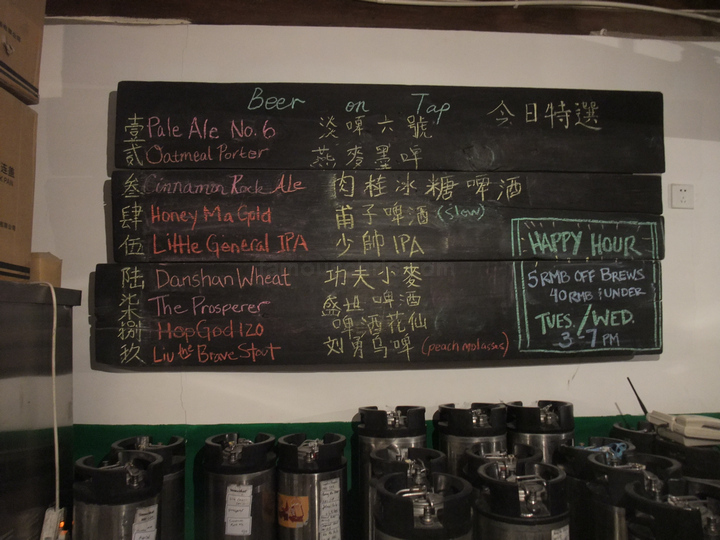 Beer on Tap 今日特選
壹 Pale Ale No. 6 淡啤六號
貳 Oatmeal Porter 燕麥墨啤
叁 Cinnamon Rock Ale 肉桂冰糖啤酒
肆 Honey Ma Gold 蜀子啤酒 (slow)
伍 Little General IPA 少帥 IPA
陆 Danshan Wheat 功夫小麥
柒 The Prosperer 盛世啤酒
捌 HopGod 120 啤酒花仙
玖 Liu the Brave Stout 刘勇鸟啤 (peach molasses)
HAPPY HOUR
5 RMB OFF BREWS
40 RMB & UNDER
TUES./WED.
3-7 PM